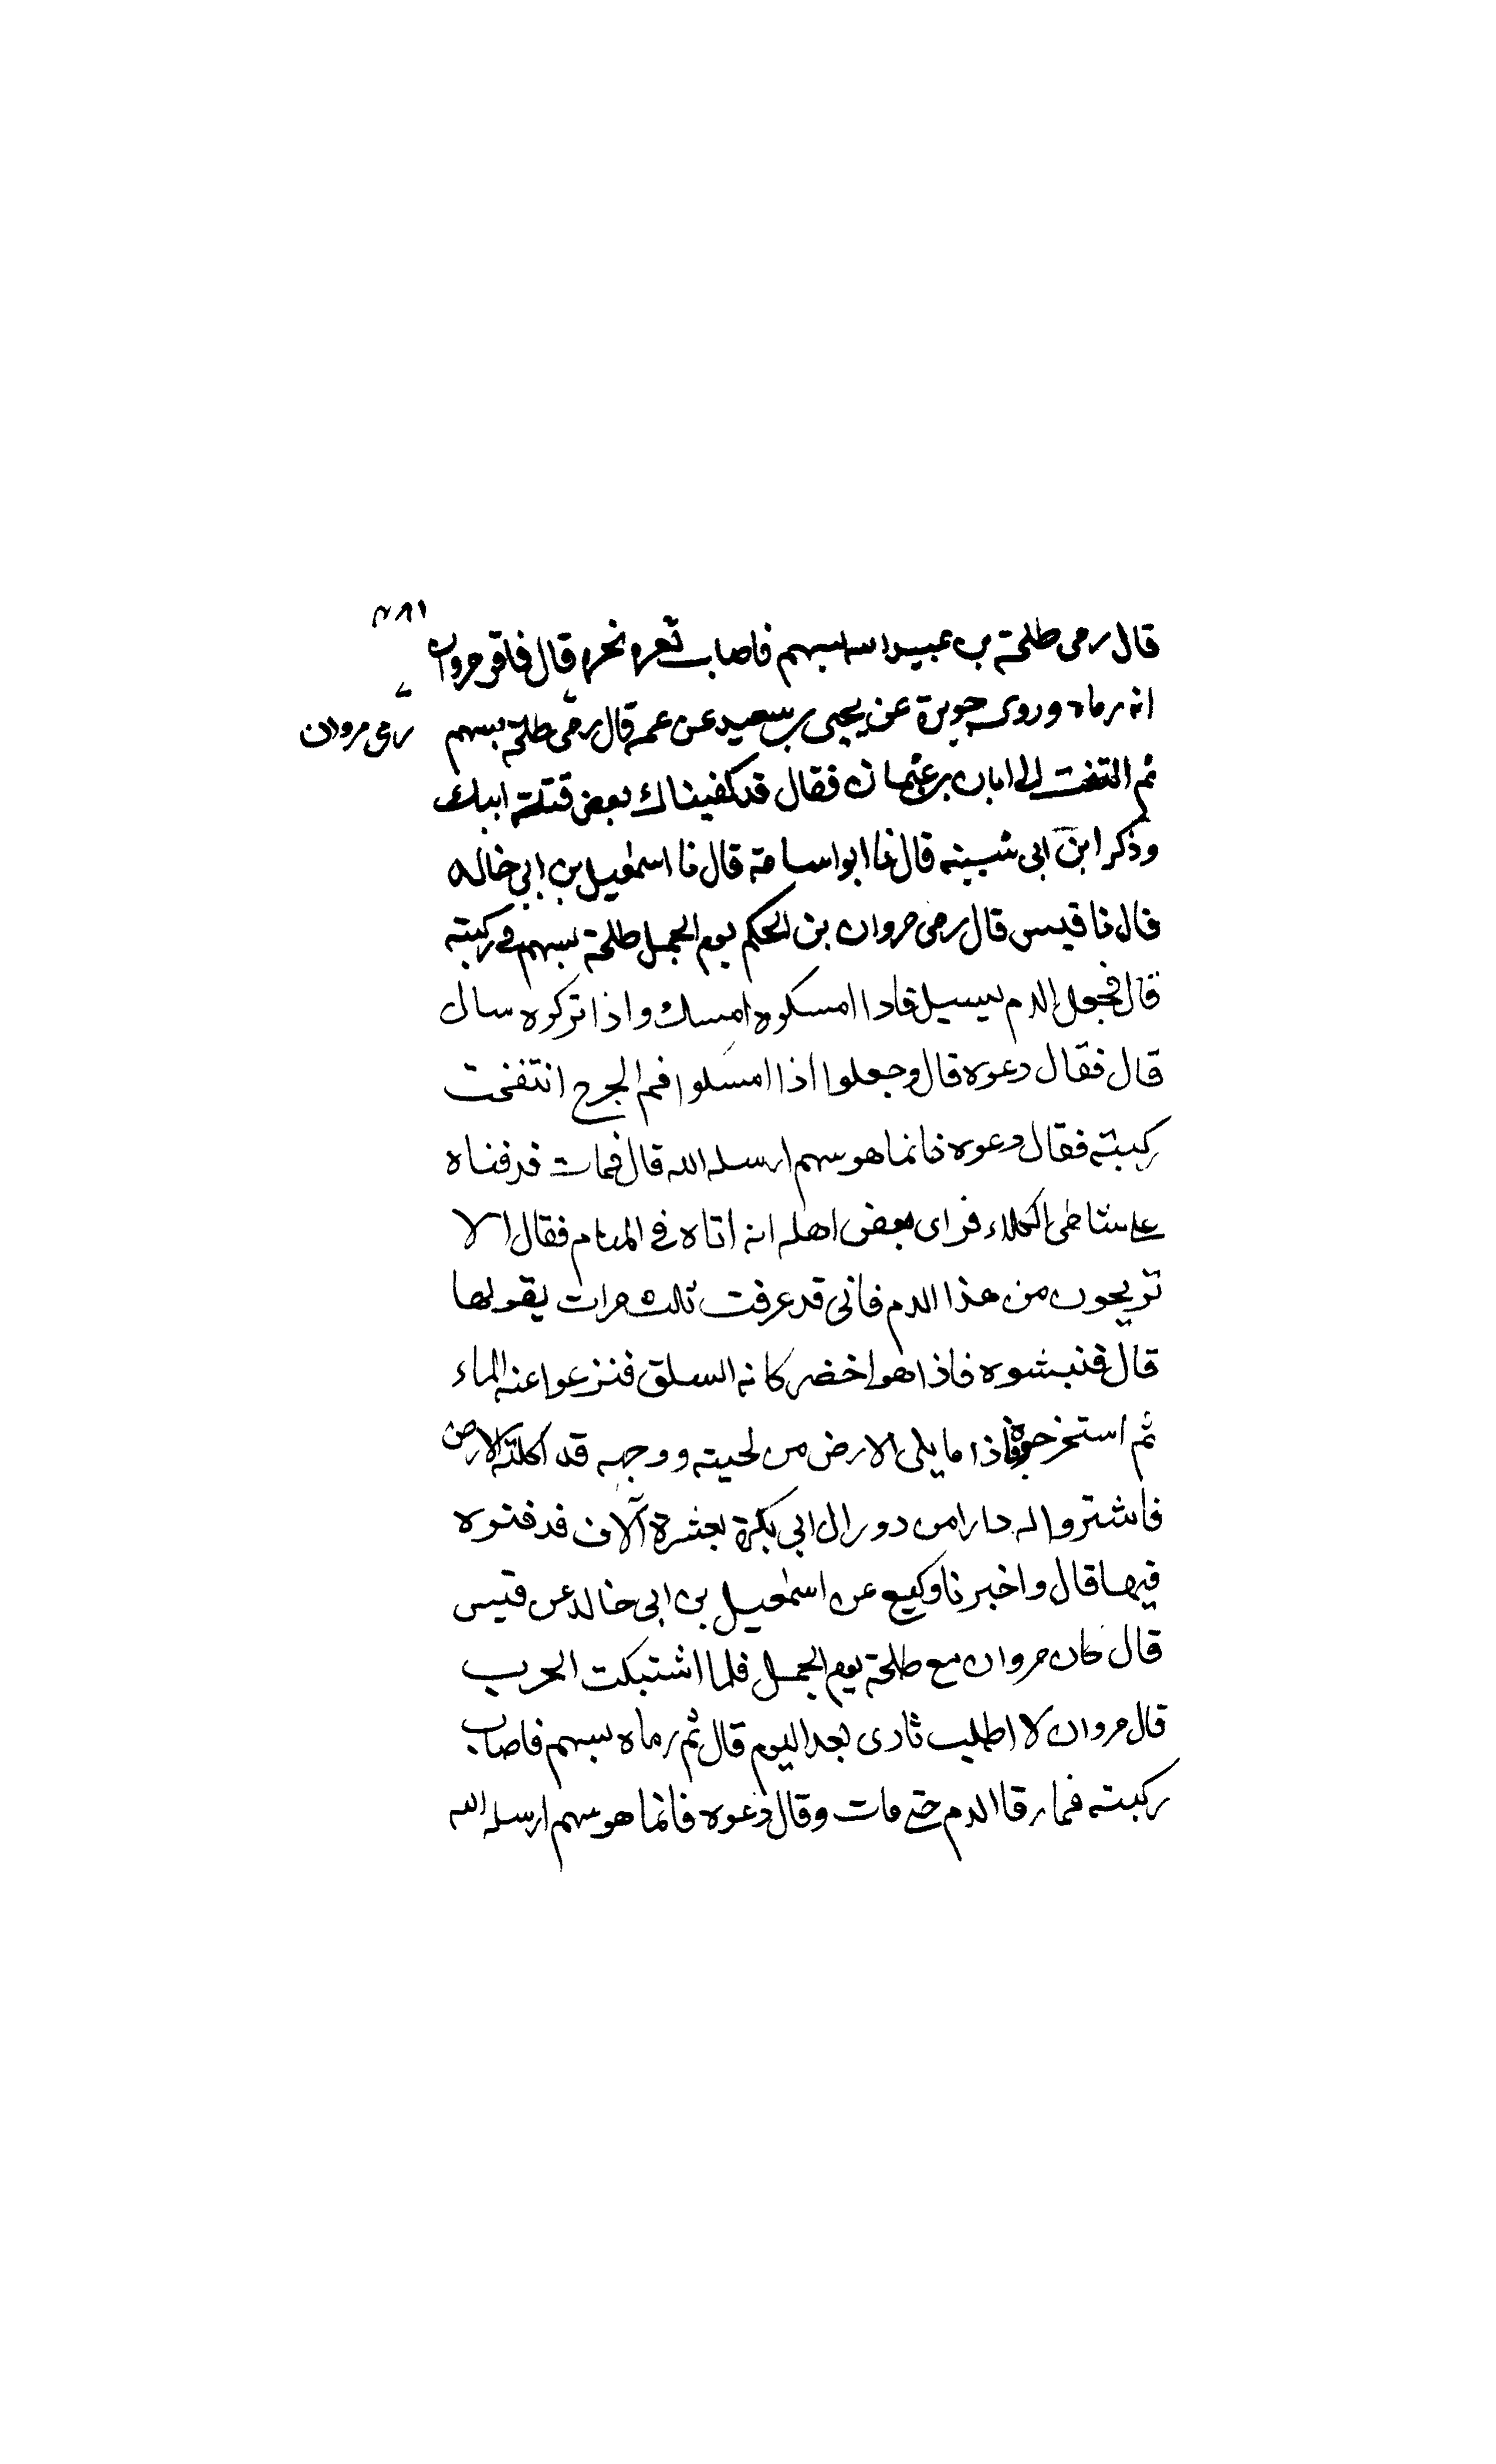 ٤٨١
قال رمى طلحة بن عبيد الله بسهم فاصاب ثغره نحره قال فاقر مروان
انه رماه وروى جويرة عن يحيى بن سعيد عن عمه قال رمى طلحة بسهم
رمى مروان
ثم التفت الى ابان بن عثمان فقال قد كفيناك بعض قتلة ابيك
وذكر ابن ابى شيبه قال نا ابو اسامة قال نا اسمعيل بن ابى خالد
قال نا قيس قال رمى مروان بن الحكم يوم الجمل طلحة بسهم فى ركبته
قال فجعل الدم يسيل فاذا امسكوه امسك واذا تركوه سال
قال فقال دعوه قال وجعلوا اذا امسكوا فم الجرح انتفخت
ركبته فقال دعوه فانما هو سهم ارسله الله قال فمات فدفناه
على شاطى الكلاء فراى بعض اهله انه اتاه فى المنام فقال الا
تريحون من هذا الدم فانى قد عرفت ثلث مرات يقولها
قال فنبشوه فاذا هو اخضر كانه السلق فنزعوا عنه الماء
ثم استخرجوه فاذا ما يلى الارض من لحيته ووجهه قد اكلته الارض
فاشتروا له دارا من دور ال ابى بكرة بعشرة آلاف فدفنوه
فيها قال واخبرنا وكيع عن اسمعيل بن ابى خالد عن قيس
قال كان مروان مع طلحة يوم الجمل فلما اشتبكت الحرب
قال مروان لا اطلب ثارى بعد اليوم قال ثم رماه بسهم فاصاب
ركبته فما رقا الدم حتى مات وقال دعوه فانما هو سهم ارسله الله